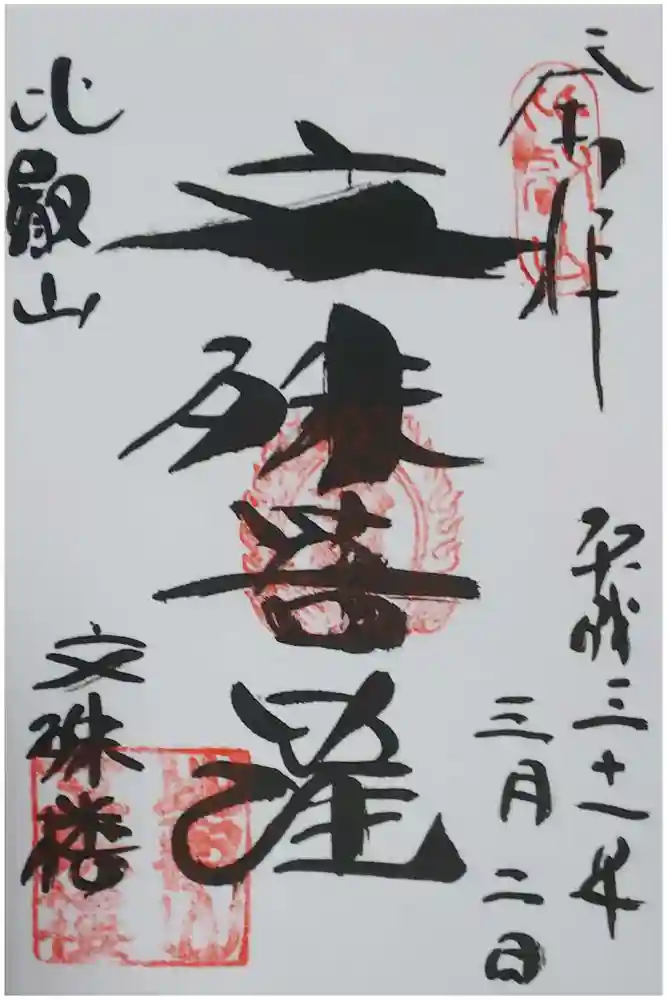 奉拝
平成三十一年
三月二日
文殊菩薩
比叡山
文殊楼